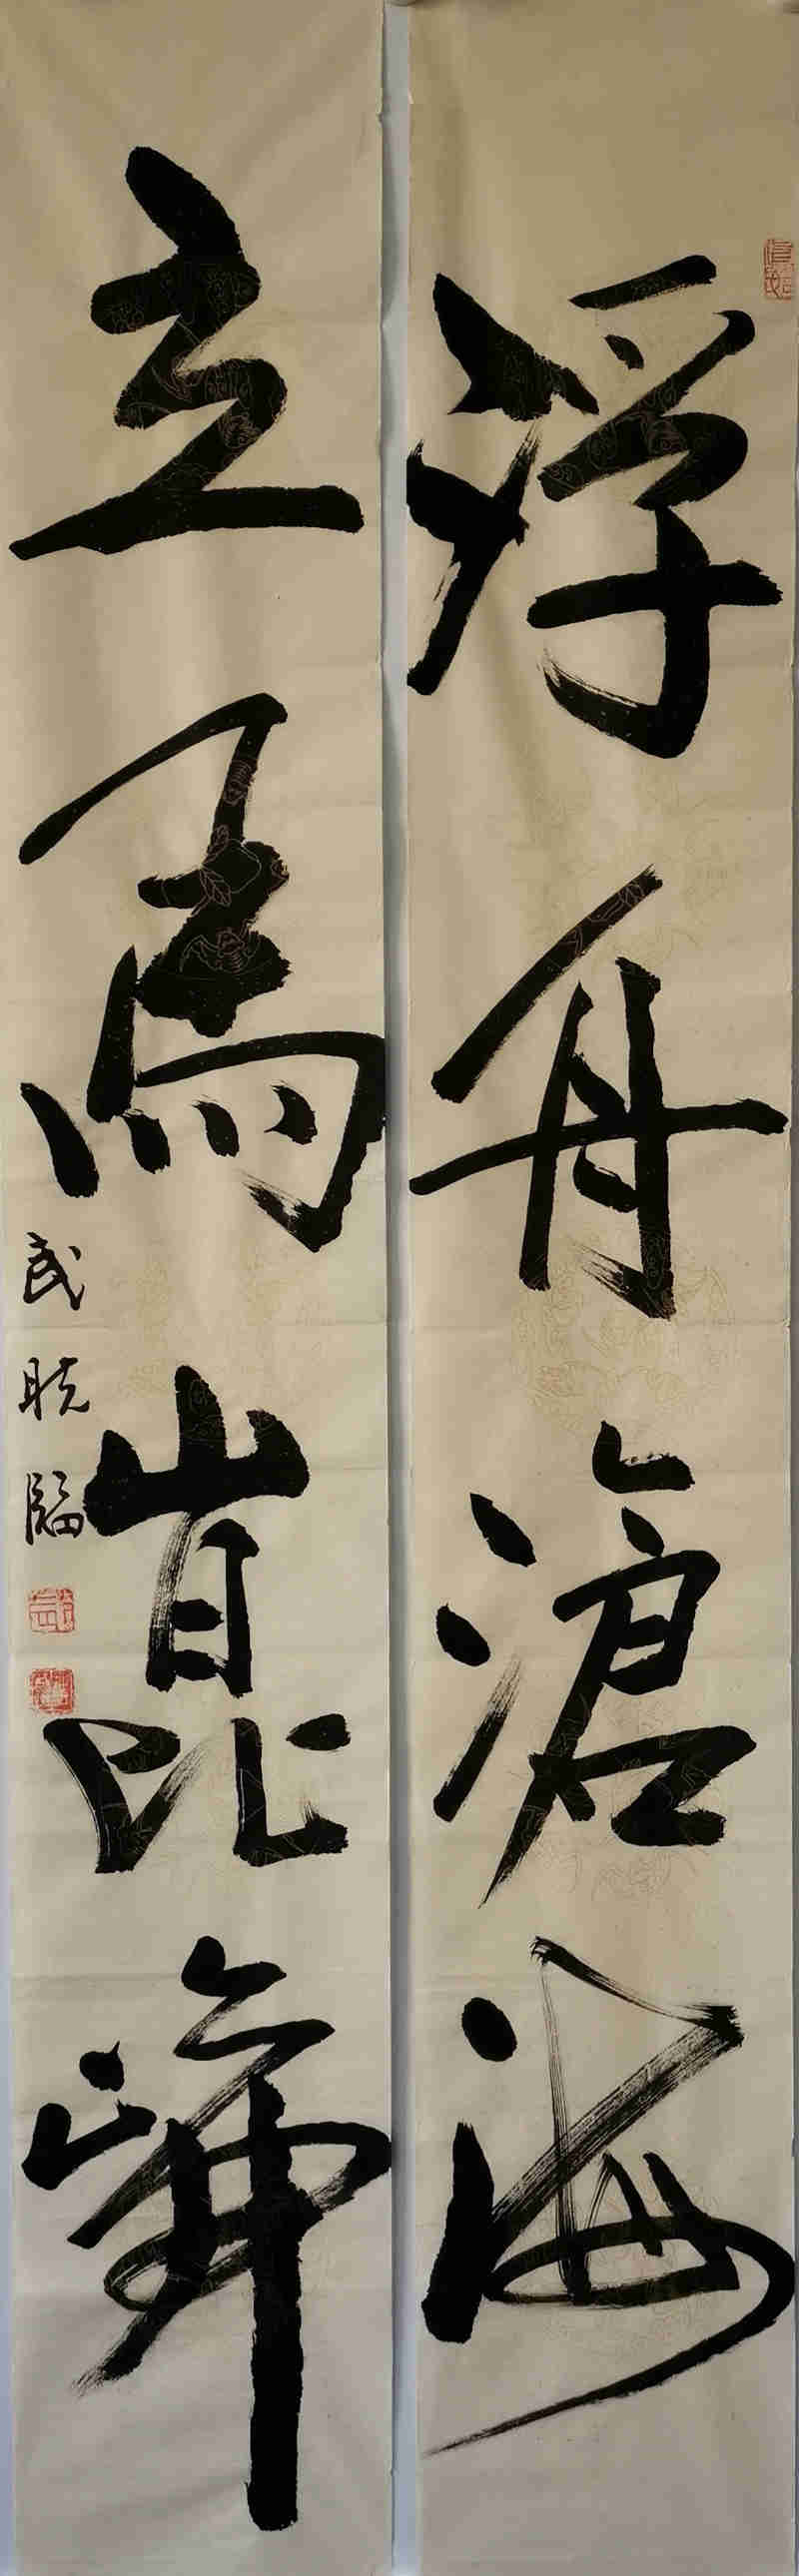 浮舟滄海
立馬崑崘
武臨